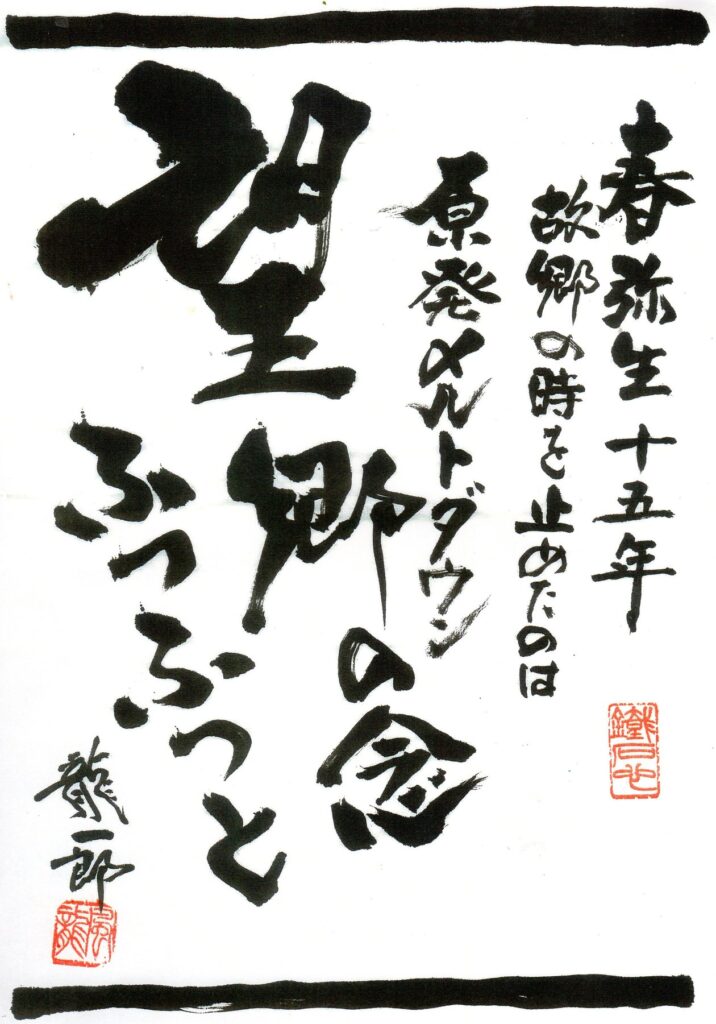 春弥生十五年
故郷の時を止めたのは
原発メルトダウン
望郷の念
ふつふつと
龍一郎
鐵石心
風龍